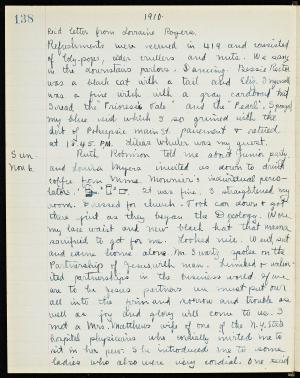 138
1910.
Rec'd letter from Lorraine Rogers.
Refreshments were served in 419 and consisted
of loly-pops, cider crullers and nuts. We sang
in the downstairs parlors. Dancing. Bessie
was a black cat with a tail and Elis. Ingersoll
was a fine witch with a gray cardboard hat
I read the "Prioress's Tale" and the "Pearl".
my blue veil which I so grimed with the
dirt of Po'keepsie main St. pavement & retired
at 12.45 P.M. Wheeler was my guest.
Sun.
Nov 6.
Ruth Robinson told me about Junior party
and Louisa Myers invited us down to drink
coffee from Minnie individual perco-
lator. It was fine. I straightened my
room. Dressed for church. Took car down & got
there just as they began the Doxology. Wore
my lace waist and new black hat that mama
sacrificed to get for me. Looked nice. Went out
and came home alone. Mr. spoke on the
Partnership of Jesus with man. limited & unlim-
ited partnerships in the business world. If we
are to be Jesus' partners we must put our
all into the firm and sorrow and trouble as
well as joy and glory will come to us. I
met a Mrs. Matthews wife of one of the N.Y. State
hospital physicians who cordially invited me to
sit in her pew. She introduced me to some
ladies who also were very cordial. One said